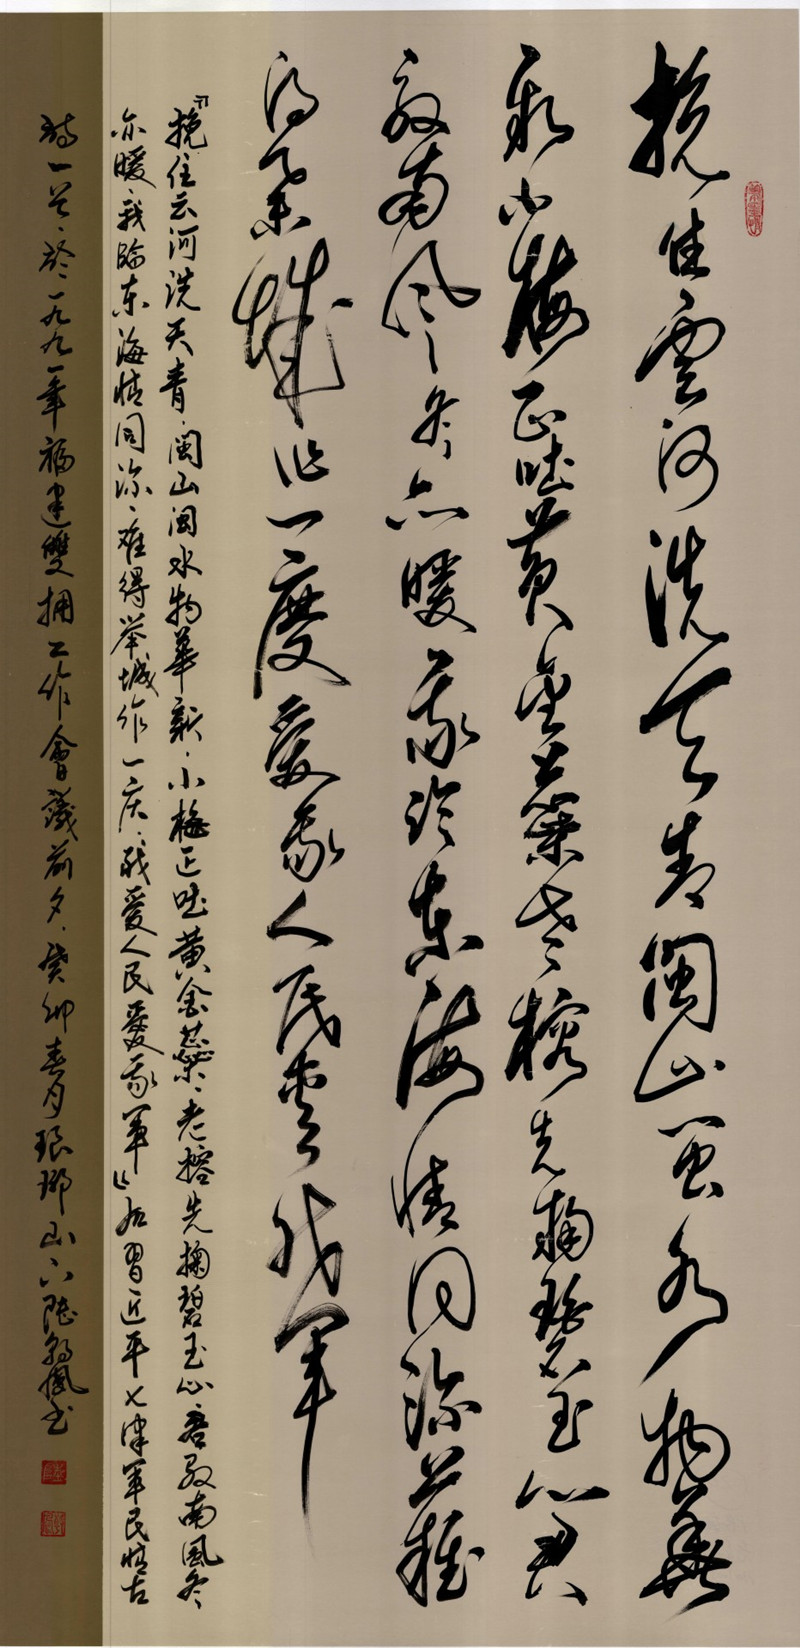 挽住雲河洗天青閩山閩水物華
新小梅正吐黄金蕊老榕先掬碧玉心君
驭南風冬亦暖我臨东海情同深難
得举城作一度愛我人民愛我軍
『挽住云河洗天青、闽山闽水物華新、小梅正吐黄金蕊、老榕先掬碧玉心君驭南風冬
亦暖、我臨东海情同深、难得举城作一庆、我爱人民愛我軍』右習近平七律軍民情古
詩一首、於一九九一年福建雙拥工作會議前夕、癸卯春月琅琊山下陸鳳书